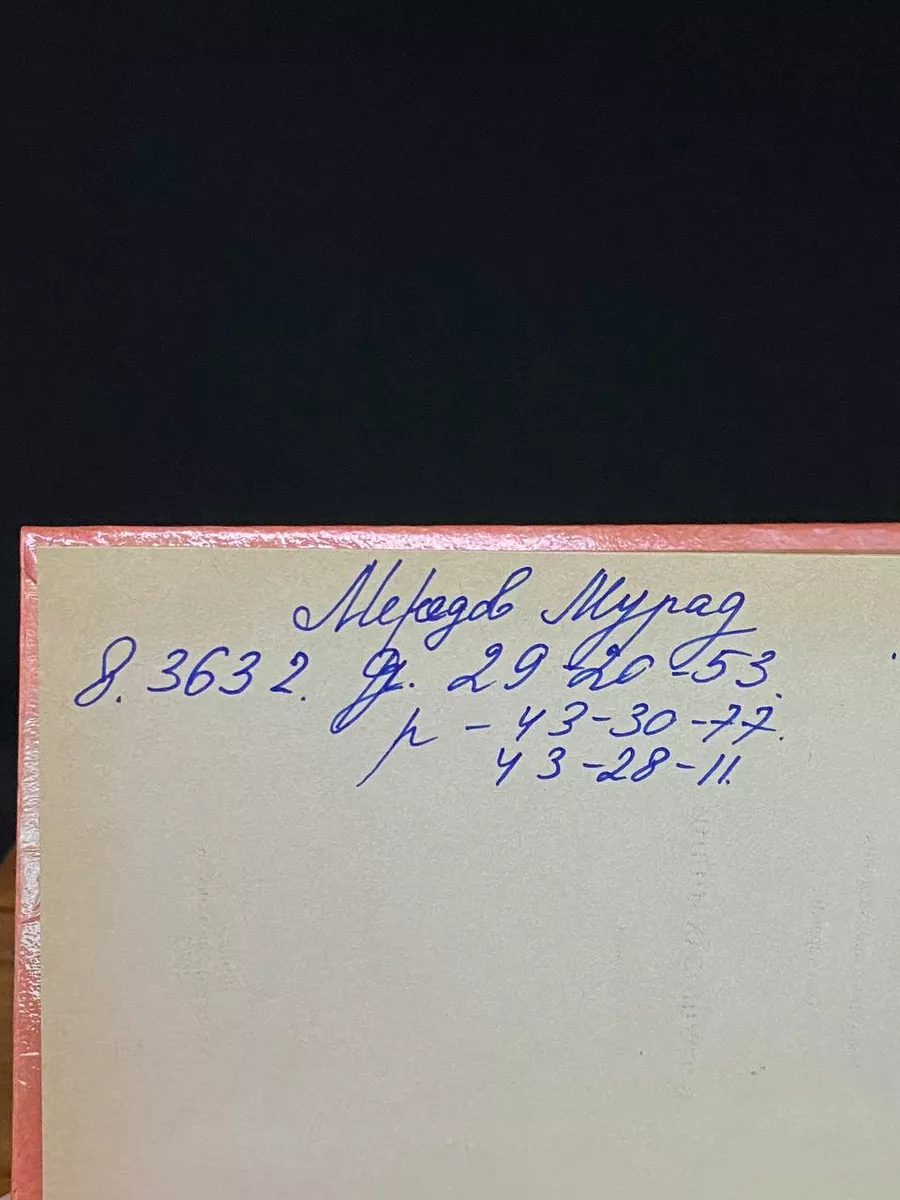 Мередов Мурад
8. 3632. д. 29-20-53.
р - 43-30-77.
43-28-11.